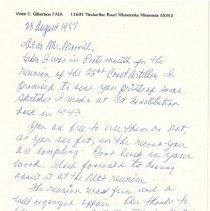 Victor C. Gilbertson FAIA 11601 Timberline Road Minnetonka Minnesota 55343
28 August 1987
Dear Mr. 
When I was in Portsmouth for the
reunion of the 22nd Coast Artillery I
promised to send you prints of some
sketches I made at Ft Constitution
back in 1943.
You are free to use them or not,
as you see fit, in the record you
are compiling. Good luck in your
work. I look forward to having
about it at the next reunion.
The reunion was fun and a
well organized affair. Our thanks to